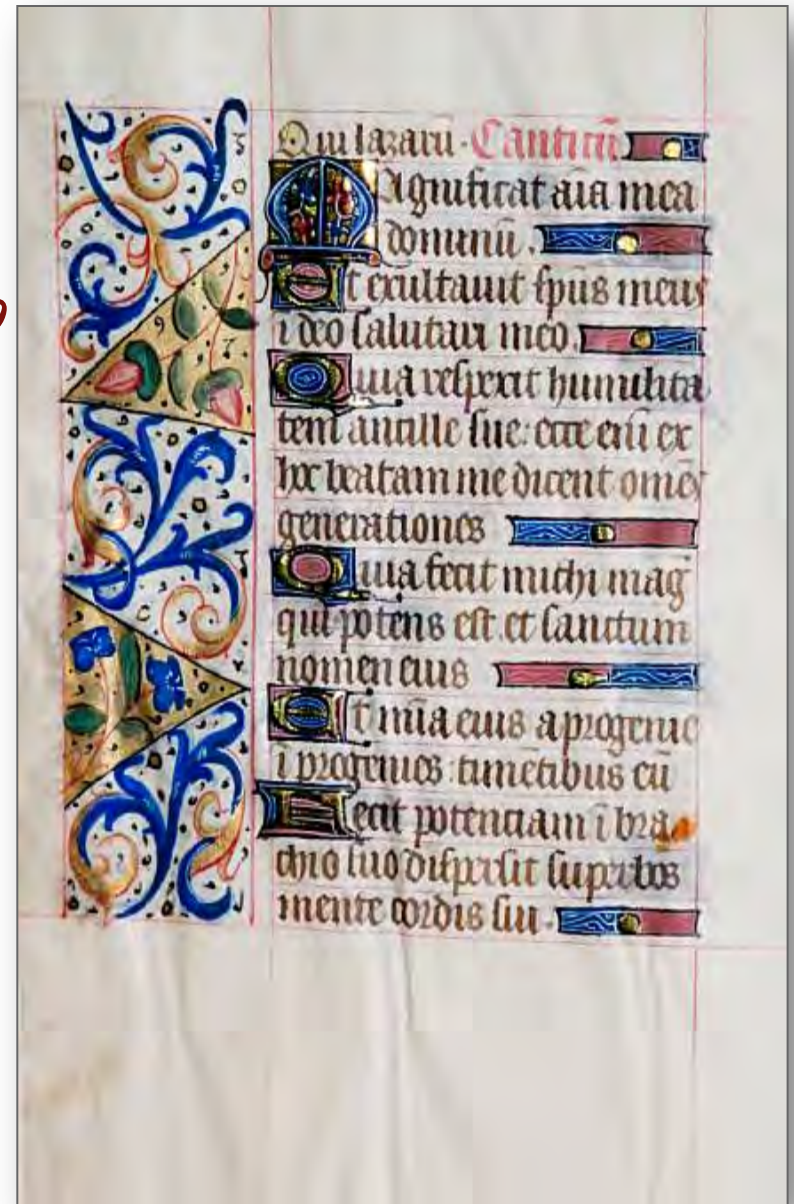 Qui lazarū. Canticū
Magnificat aīa mea
dominū.
Et exultavit spūs meus
ī deo salutari meo.
Quia respexit humilita
tem ancille sue: ecce enī ex
hoc beatam me dicent omēs
generationes
Quia fecit michi maḡ
qui potens est. et sanctum
nomen eius
Et mīa eius a progenie
ī progenies: timētibus eū
Fecit potenciam ī bra
chio suo dispersit superbos
mente cordis sui.